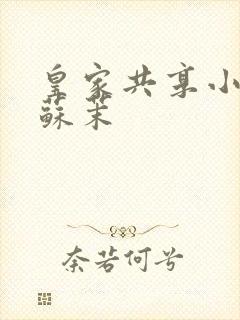 皇家共享小
蘇茉
奈若何兮